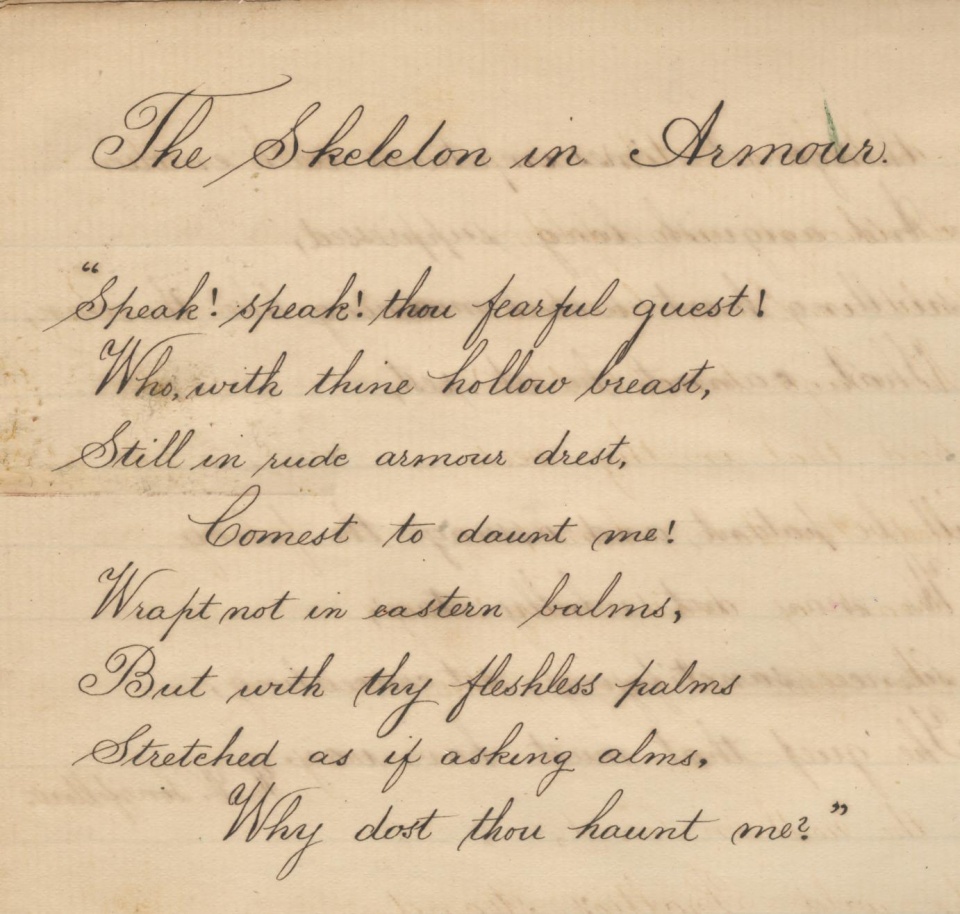 The Skeleton in Armour.
“Speak! speak! thou fearful guest!
Who, with thine hollow breast,
Still in rude armour drest,
Comest to daunt me!
Wrapt not in eastern balms,
But with thy fleshless palms
Stretched as if asking alms,
Why dost thou haunt me?”